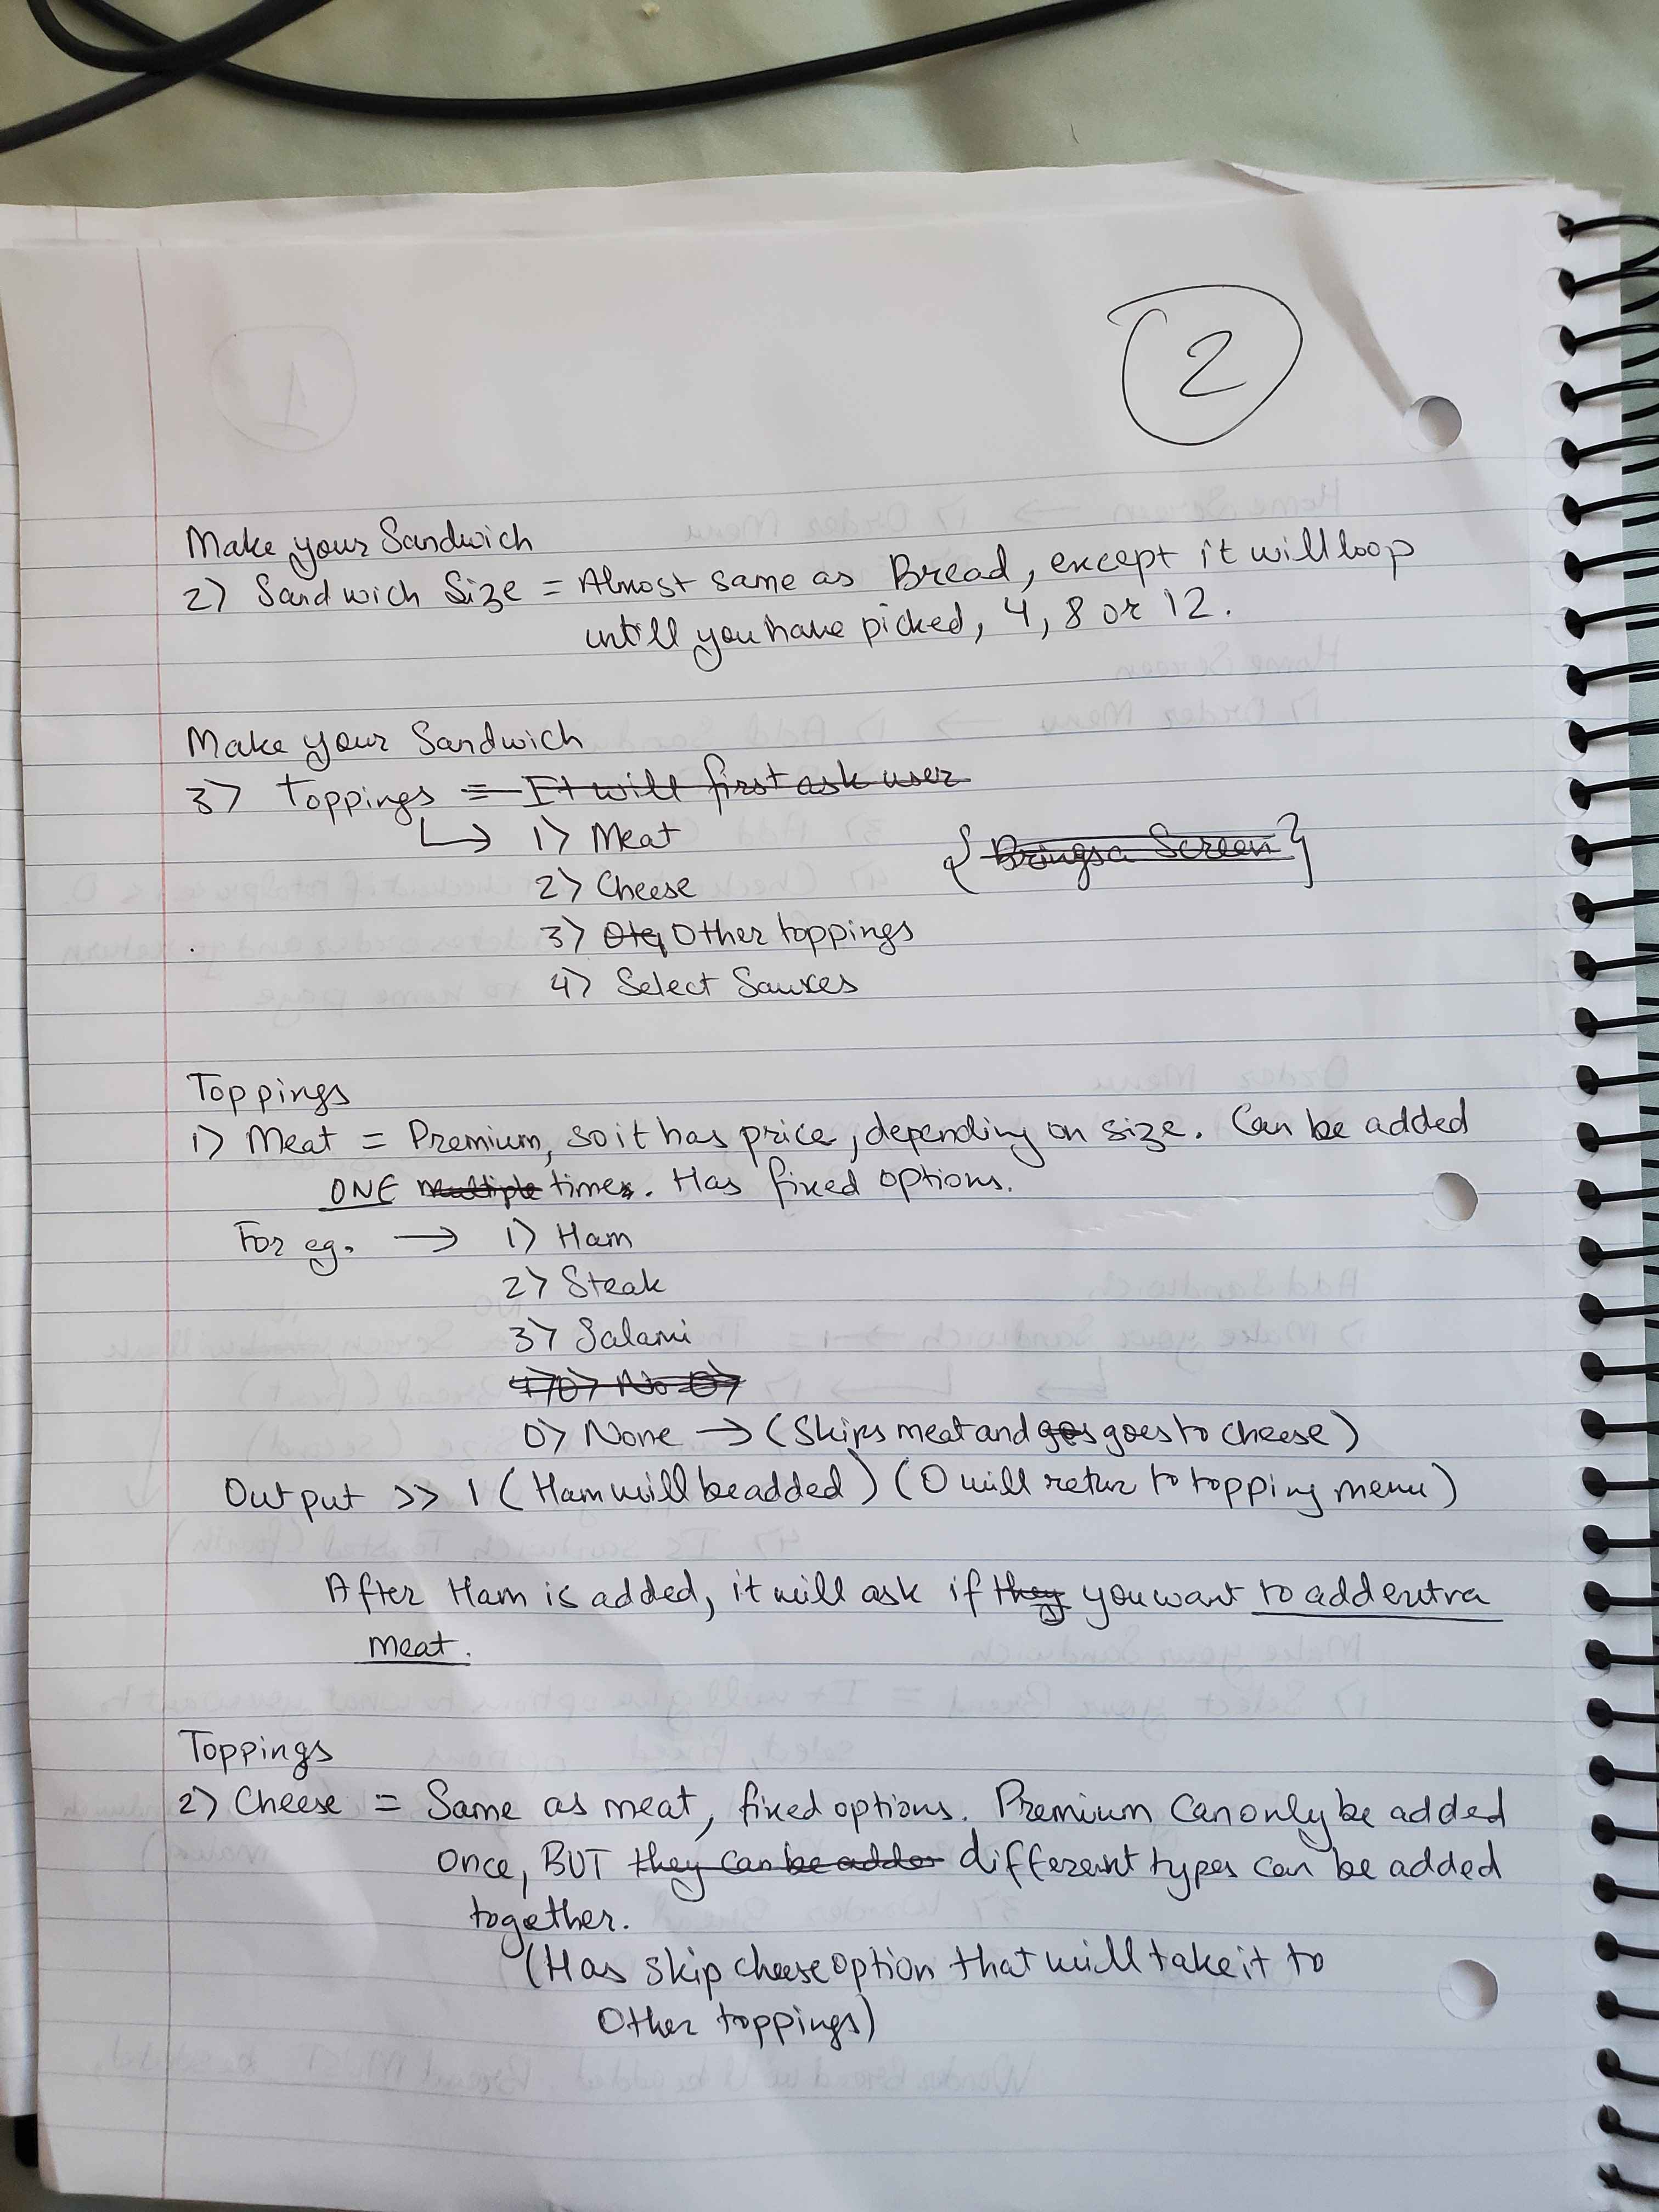 2
Make your Sandwich
2) Sandwich Size = Almost same as Bread, except it will loop
untill you have picked, 4, 8 or 12.
Make your Sandwich
3) Toppings = It will first ask user
↳ 1) Meat { Brings a Screen }
2) Cheese
3) Other toppings
4) Select Sauces
Toppings
1) Meat = Premium, so it has price, depending on size. Can be added
ONE multiple times. Has fixed options.
For eg. → 1) Ham
2) Steak
3) Salami
0) None → (Skips meat and goes goes to cheese)
Output >> 1 (Ham will be added) (0 will return to topping menu)
After Ham is added, it will ask if they you want to add extra
meat.
Toppings
2) Cheese = Same as meat, fixed options. Premium Can only be added
once, BUT they can be added different types can be added
together.
(Has skip cheese option that will take it to
Other toppings)